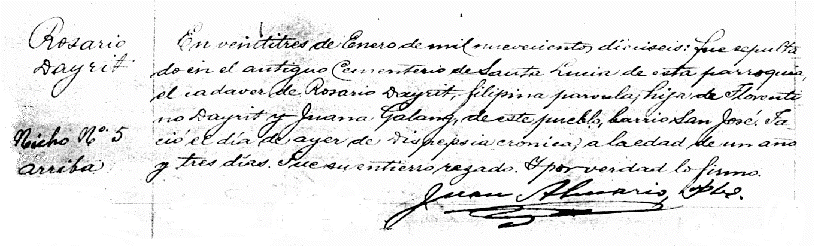 Rosario
Dayrit
Nicho No. 5
arriba
En veintitres de Enero de mil novecientos dieciseis: fue sepulta
do en el antiguo Cementerio de Santa Lucia de esta parroquia,
el cadaver de Rosario Dayrit, filipina parvula, hija de Florenti
no Dayrit y Juana Galang, de este pueblo, barrio San José. Fa
ció el día de ayer de dispepsia cronica, a la edad de un año
y tres días. Fue su entierro rezado. Y por verdad lo firmo.
Juan Almario, Pbro.